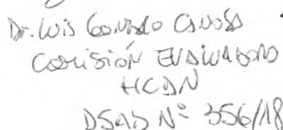 Dr. Luis Gonzalo Canosa
COMISIÓN EVALUADORA
HCDN
DSAD Nº 356/18